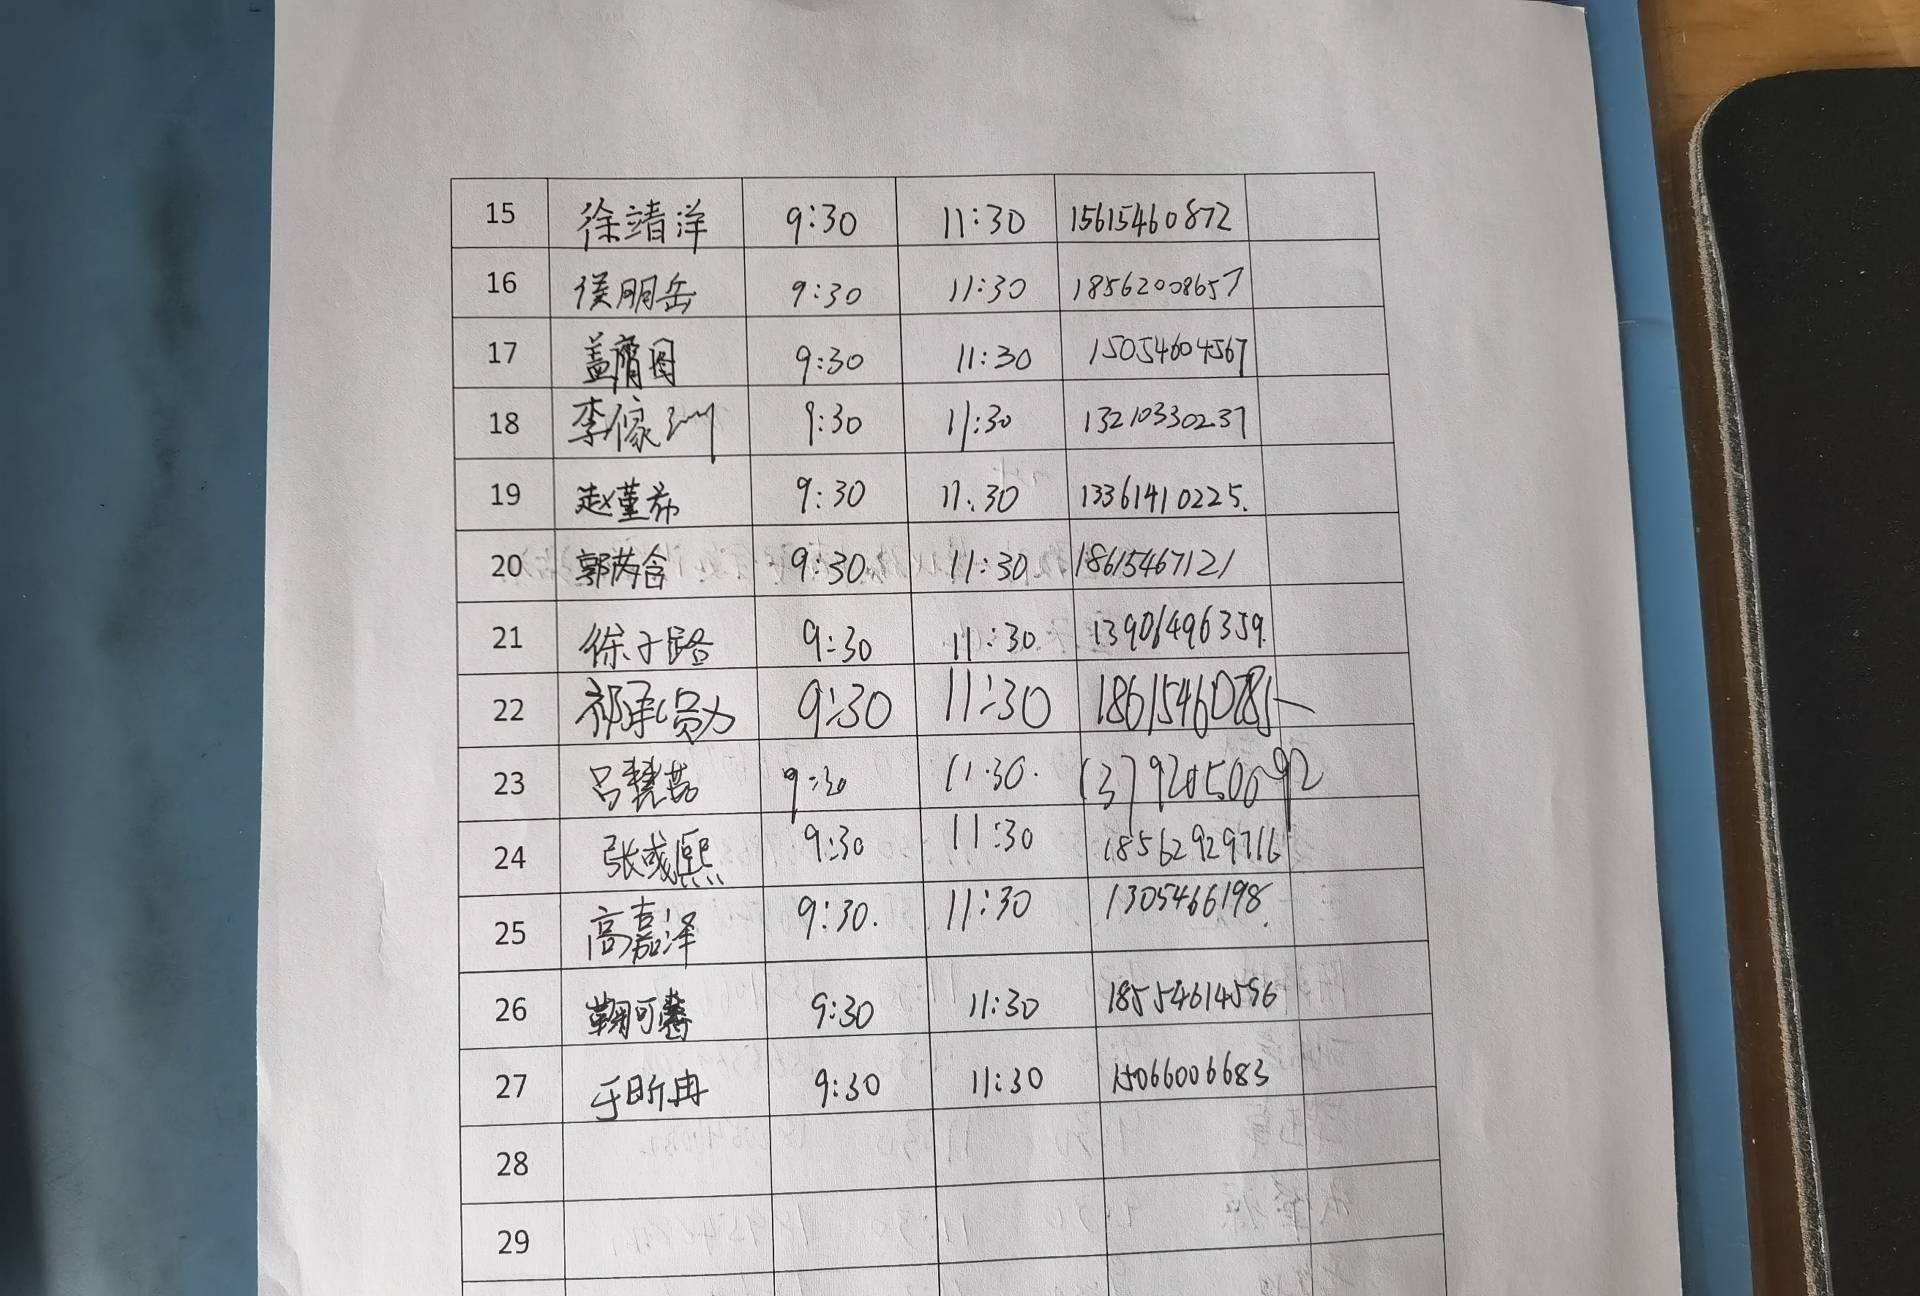 15 徐靖洋 9:30 11:30 15615460872
16 侯朋岳 9:30 11:30 18562008657
17 9:30 11:30 15054604567
18 李傢 9:30 11:30 13210330237
19 赵堇希 9:30 11:30 13361410225.
20 郭芮含 9:30 11:30 18615467121
21 徐子路 9:30 11:30 13906496359.
22 祁承勋 9:30 11:30
23 吕慧茹 9:30 11:30. 13792050092
24 张彧熙 9:30 11:30 18562929716
25 高嘉泽 9:30. 11:30 1305466198.
26 鞠可馨 9:30 11:30 18554614596
27 于昕冉 9:30 11:30 15066006683
28
29